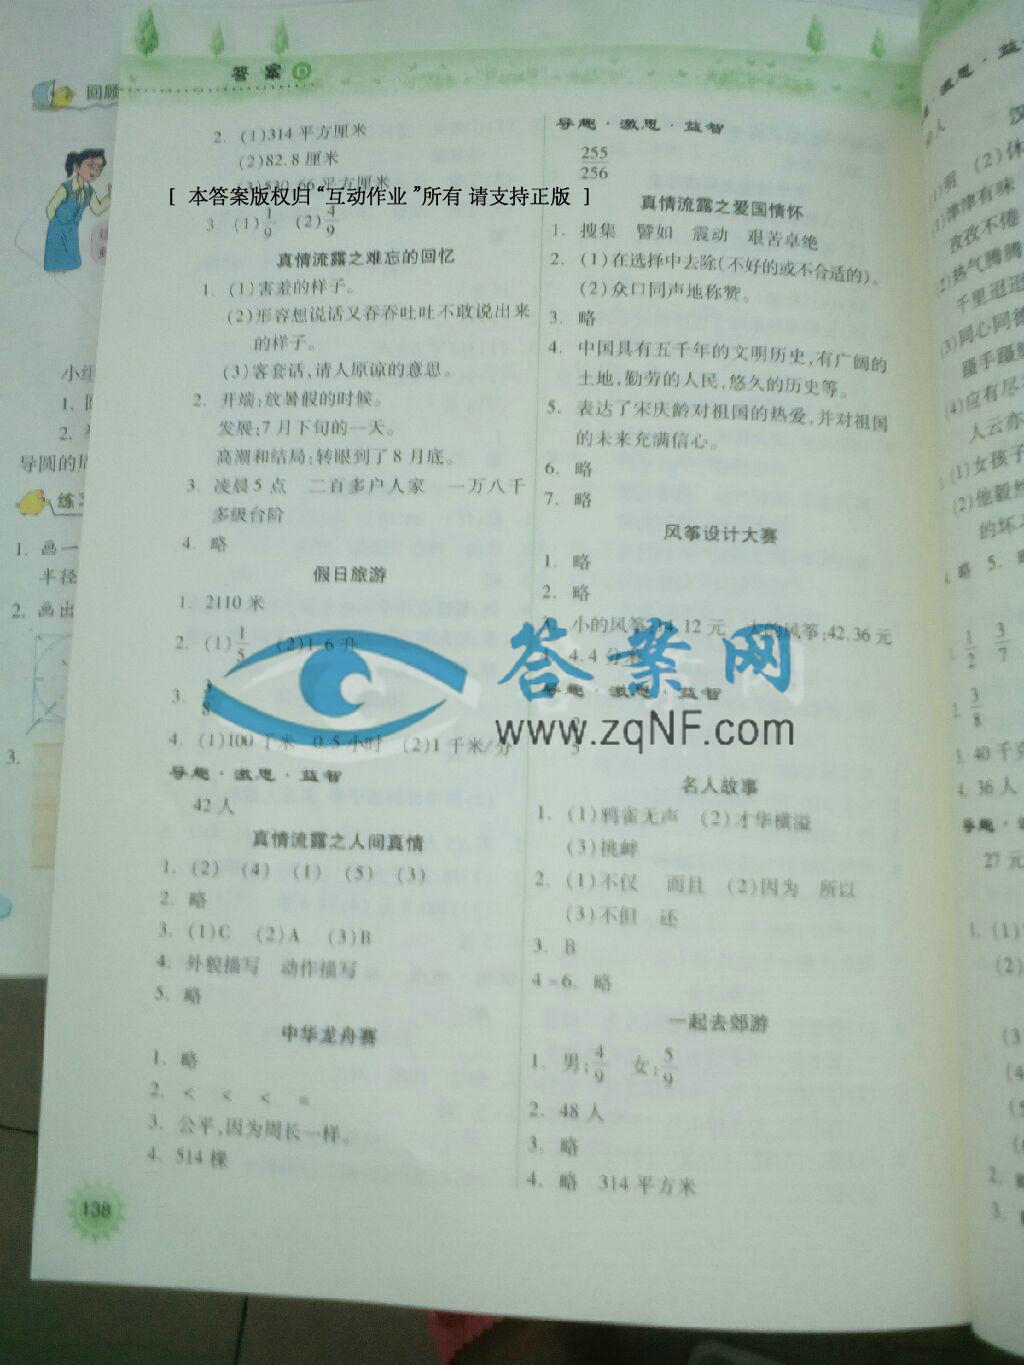 答案
2. (1)314平方厘米
(2)82.8厘米
[ 本答案版权归“互动作业”所有 请支持正版 ]
3. (1)1/9 (2)4/9
真情流露之难忘的回忆
1. (1)害羞的样子。
(2)形容想说话又吞吞吐吐不敢说出来
的样子。
(3)客套话,请人原谅的意思。
2. 开端:放暑假的时候。
发展:7月下旬的一天。
高潮和结局:转眼到了8月底。
3. 凌晨5点 二百多户人家 一万八千
多级台阶
4. 略
假日旅游
1. 2110米
2. (1)1/5 (2)1.6升
3. 8
4. (1)100千米 0.5小时 (2)1千米/分
导趣·激思·益智
42人
真情流露之人间真情
1. (2) (4) (1) (5) (3)
2. 略
3. (1)C (2)A (3)B
4. 外貌描写 动作描写
5. 略
中华龙舟赛
1. 略
2. < < < =
3. 公平,因为周长一样。
4. 514棵
138
导趣·激思·益智
255/256
真情流露之爱国情怀
1. 搜集 譬如 震动 艰苦卓绝
2. (1)在选择中去除(不好的或不合适的)。
(2)众口同声地称赞。
3. 略
4. 中国具有五千年的文明历史,有广阔的
土地,勤劳的人民,悠久的历史等。
5. 表达了宋庆龄对祖国的热爱,并对祖国
的未来充满信心。
6. 略
7. 略
风筝设计大赛
1. 略
2. 略
3. 小的风筝:14.12元 大的风筝:42.36元
4.4分米
答案网
www.zqNF.com
导趣·激思·益智
名人故事
1. (1)鸦雀无声 (2)才华横溢
(3)挑衅
2. (1)不仅 而且 (2)因为 所以
(3)不但 还
3. B
4-6. 略
一起去郊游
1. 男:4/9 女:5/9
2. 48人
3. 略
4. 略 314平方米
回顾
小组
1.
2.
导圆的周
练习
1. 画一
半径
2. 画出
3.
激思·益
(2)休
(1)津津有味
孜孜不倦
(2)热气腾腾
千里迢迢
(3)同心同德
蹑手蹑
(4)应有尽
人云亦
(1)女孩子
(2)他毅然
的坏
略 5.
1/2 3/7
2. 3/8
3. 40千克
4. 36人
导趣
27元
1. (1)
(2)
(3)
(4)
(5)
(6)
2.
3.